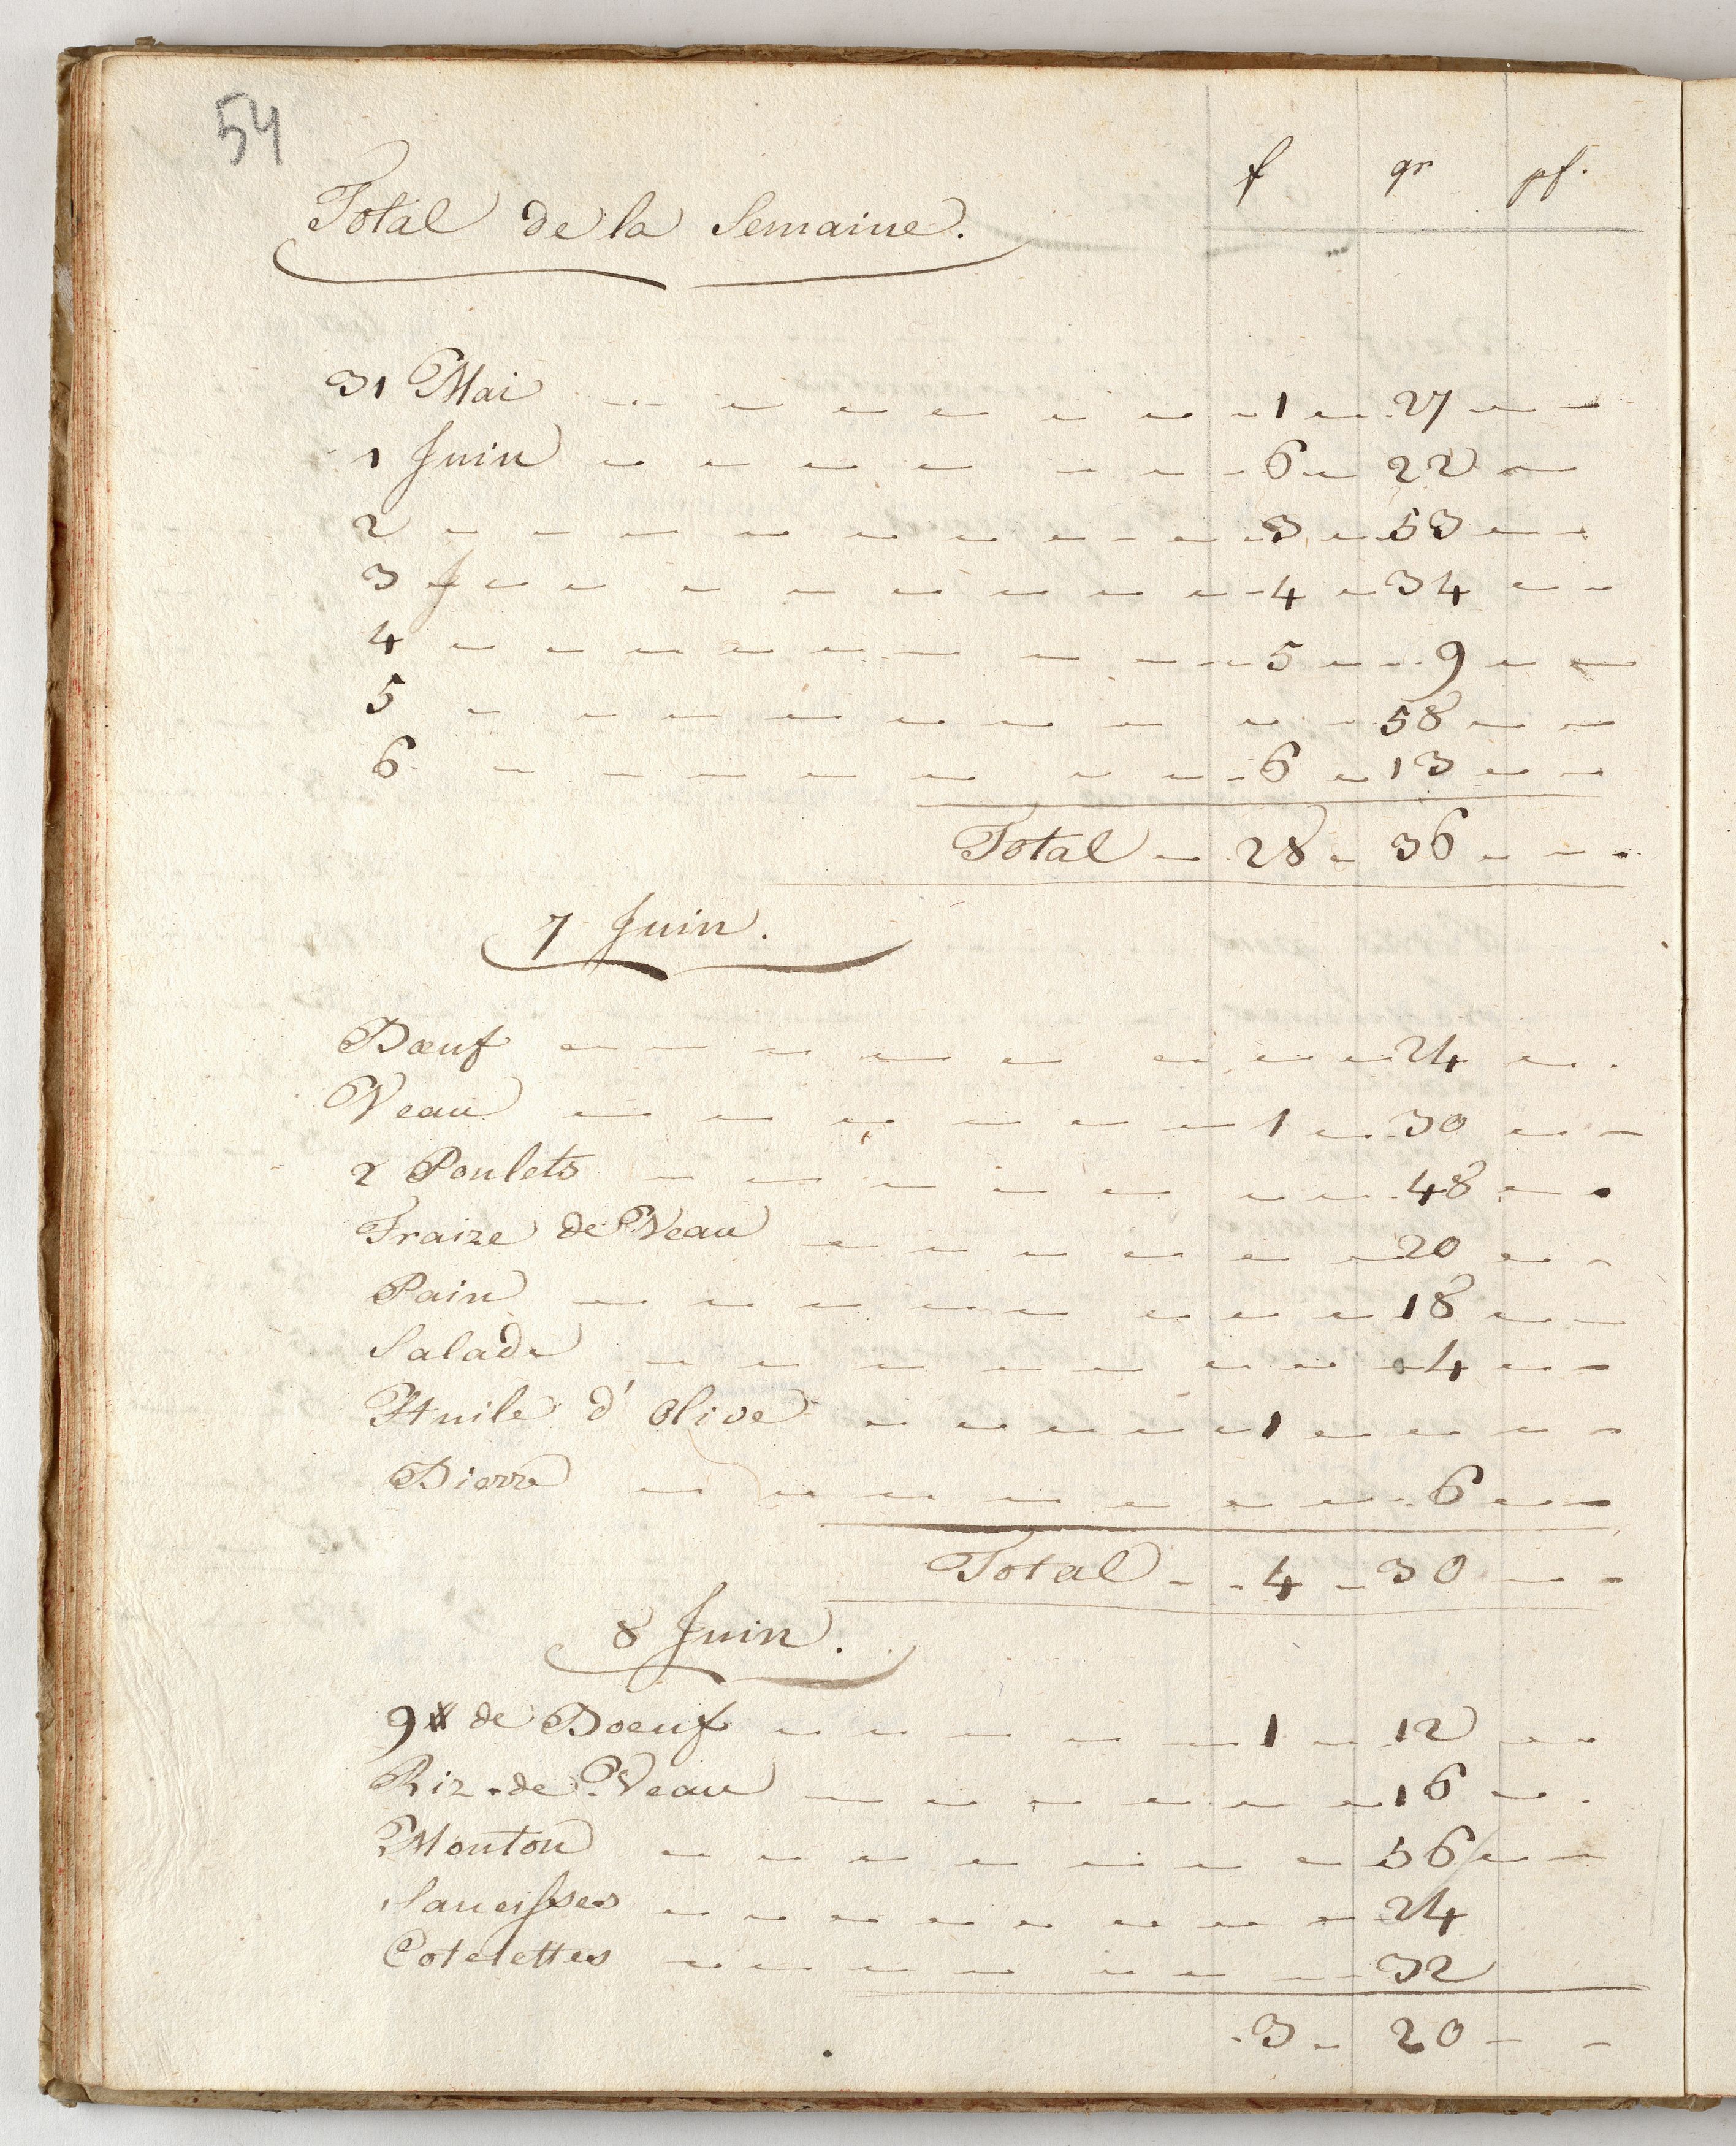 54
f gr pf.
Total de la Semaine.
31 Mai - - - 1 - 27 - -
1 Juin - - - 6 - 22 -
2 - - - 3 - 53 - -
3 - - - 4 - 34 - -
4 - - - 5 - 9 - -
5 - - - 58 - -
6 - - - 6 - 13 - -
Total - 28 - 36 - - -
7 Juin.
Bœuf - - - 24 - -
Veau - - - 1 - 30 - -
2 Poulets - - - 48 - -
Fraize de Veau - - - 20 - -
Pain - - - 18 - -
Salade - - - 4 - -
Huile d'olive - - - 1 - - - -
Bierre - - - 6 - -
Total - - 4 - 30 - -
8 Juin.
9 ℔ de Boeuf - - - 1 - 12 - -
Riz-de-Veau - - - 16 - -
Mouton - - - 56 - -
Saucisses - - - 24
Cotelettes - - - 32
- 3 - 20 - -